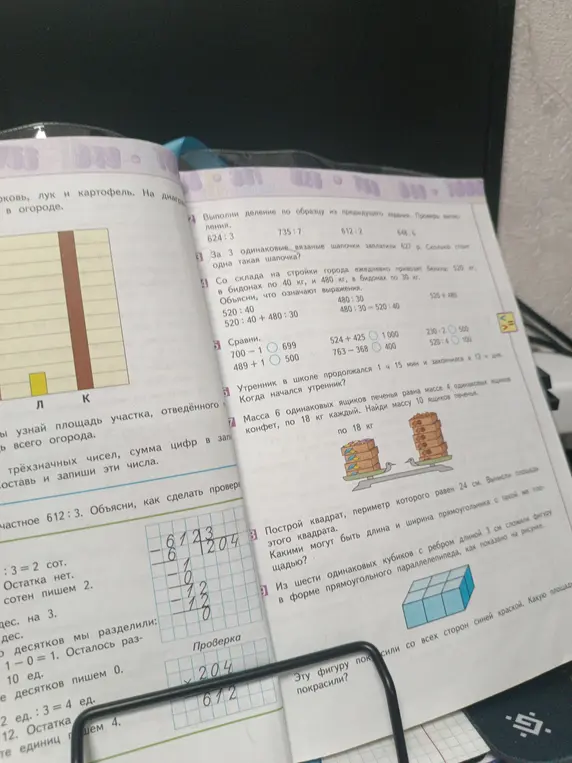 рковь, лук и картофель. На
в огороде.
Л К
ы узнай площадь участка, отведённого
ь всего огорода.
трёхзначных чисел, сумма цифр в
оставь и запиши эти числа.
частное 612 : 3. Объясни, как сделать
: 3 = 2 сот.
Остатка нет.
сотен пишем 2.
дес. на 3.
дес.
десятков мы разделили:
1 − 0 = 1. Осталось раз-
10 ед.
е десятков пишем 0.
2 ед. : 3 = 4 ед.
12. Остатка
те единиц 4.
612 3
6 204
1
0
12
12
0
Проверка
204
×
612
Выполни деление по образцу из предыдущего задания. Проверь
ления.
624 : 3 735 : 7 612 : 2
За 3 одинаковые вязаные шапочки заплатили 627 р. Сколько стоит
одна такая шапочка?
Со склада на стройки города ежедневно 520 кг,
в бидонах по 40 кг, и 480 кг, в бидонах по 30 кг.
Объясни, что означают выражения.
520 : 40 480 : 30 520 + 480
520 : 40 + 480 : 30 480 : 30 − 520 : 40
Сравни.
700 − 1 699 524 + 425 1 000 230 · 2 500
489 + 1 500 763 − 368 400 520 : 4
Утренник в школе продолжался 1 ч 15 мин и закончился в 12 ч
Когда начался утренник?
Масса 6 одинаковых ящиков печенья равна массе 4 одинаковых ящиков
конфет, по 18 кг каждый. Найди массу 10 ящиков печенья.
по 18 кг
Построй квадрат, периметр которого равен 24 см. Вычисли площадь
этого квадрата.
Какими могут быть длина и ширина прямоугольника с такой же пло-
щадью?
Из шести одинаковых кубиков с ребром длиной 3 см сложили фигуру
в форме прямоугольного параллелепипеда, как показано на рисунке.
Эту фигуру покрасили со всех сторон синей краской. Какую
покрасили?